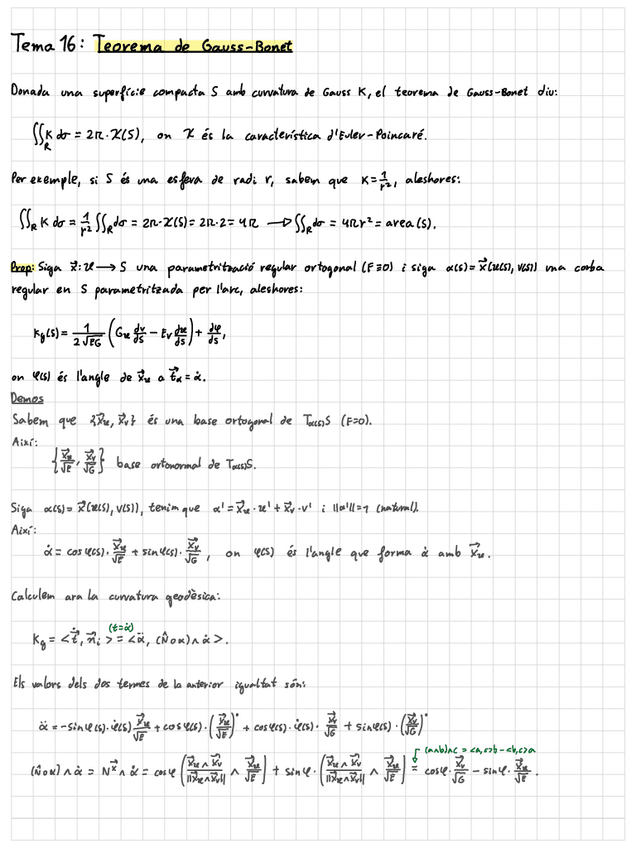 Tema 16: Teorema de Gauss-Bonet
Donada una superfície compacta S amb curvatura de Gauss K, el teorema de Gauss-Bonet diu:
∬_R K dσ = 2π·χ(S), on χ és la característica d'Euler-Poincaré.
Per exemple, si S és una esfera de radi r, sabem que K=1/r², aleshores:
∬_R K dσ = 1/r² ∬_R dσ = 2π·χ(S) = 2π·2 = 4π → ∬_R dσ = 4πr² = area(S).
Prop: Siga x⃗:U → S una parametrització regular ortogonal (F≡0) i siga α(s)=x⃗(u(s), v(s)) una corba
regular en S parametritzada per l'arc, aleshores:
Kg(s) = 1/(2√EG) (Gu dv/ds − Ev du/ds) + dφ/ds,
on φ(s) és l'angle de x⃗u a t⃗α = α̇.
Demos
Sabem que {x⃗u, x⃗v} és una base ortogonal de Tα(s)S (F=0).
Així:
{x⃗u/√E, x⃗v/√G} base ortonormal de Tα(s)S.
Siga α(s) = x⃗(u(s), v(s)), tenim que α' = x⃗u·u' + x⃗v·v' i ||α'||=1 (natural).
Així:
α̇ = cos φ(s)· x⃗u/√E + sin φ(s)· x⃗v/√G, on φ(s) és l'angle que forma α̇ amb x⃗u.
Calculem ara la curvatura geodèsica:
(t=α̇)
Kg = <ṫ⃗, n⃗i> = <α̈, (N̂∘α)∧α̇>.
Els valors dels dos termes de la anterior igualtat són:
α̈ = −sin φ(s)·φ̇(s) x⃗u/√E + cos φ(s)·(x⃗u/√E)˙ + cos φ(s)·φ̇(s)· x⃗v/√G + sin φ(s)·(x⃗v/√G)˙
(a∧b)∧c = <a,c>b − <b,c>a
(N̂∘α)∧α̇ = N^x⃗ ∧ α̇ = cos φ (x⃗u∧x⃗v/||x⃗u∧x⃗v|| ∧ x⃗u/√E) + sin φ·(x⃗u∧x⃗v/||x⃗u∧x⃗v|| ∧ x⃗u/√E) = cos φ· x⃗v/√G − sin φ· x⃗u/√E.